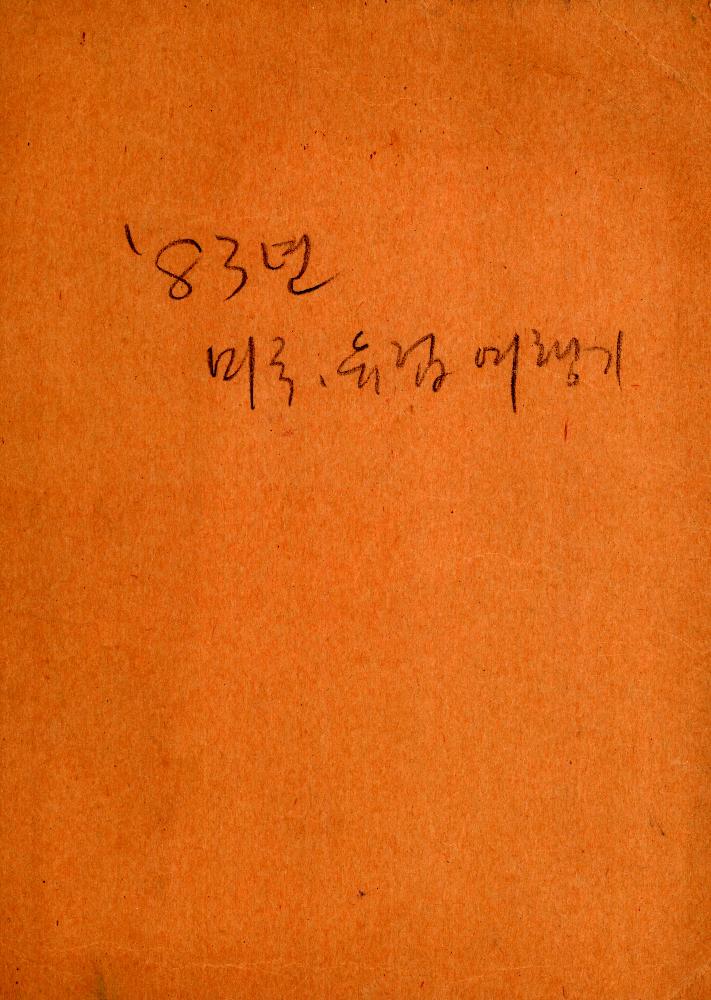 '83년
미국. 유럽 여행기